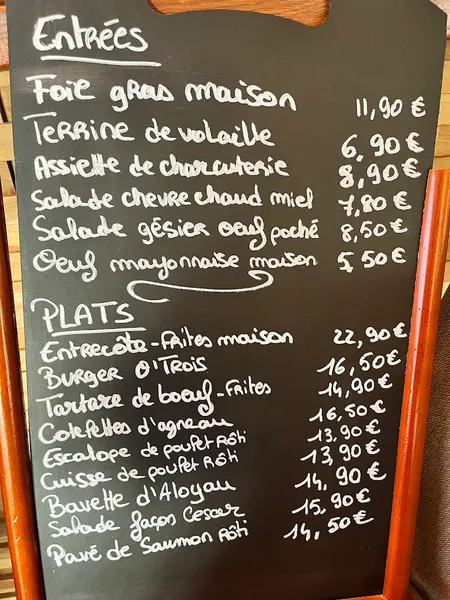 Entrées
Foie gras maison 11,90 €
Terrine de volaille 6,90 €
Assiette de charcuterie 8,90 €
Salade chevre chaud miel 7,80 €
Salade gésier oeuf poché 8,50 €
Oeuf mayonnaise maison 5,50 €
PLATS
Entrecôte-frites maison 22,90 €
Burger O'Trois 16,50 €
Tartare de boeuf-frites 14,90 €
Cotelettes d'agneau 16,50 €
Escalope de poulet Rôti 13,90 €
Cuisse de poulet Rôti 13,90 €
Bavette d'Aloyau 14,90 €
Salade façon Cesar 15,90 €
Pavé de Saumon Rôti 14,50 €